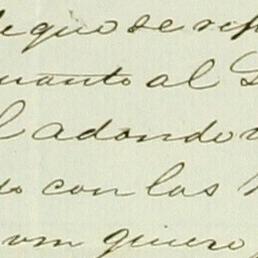 que se
uanto al
adonde
con las
um quiero